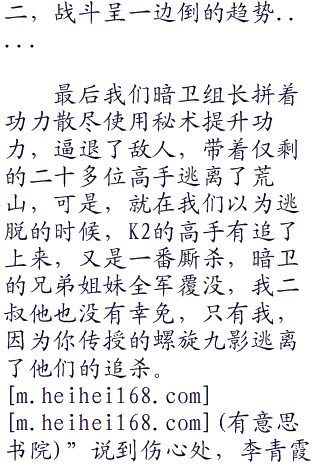 二，战斗呈一边倒的趋势..
...
最后我们暗卫组长拼着
功力散尽使用秘术提升功
力，逼退了敌人，带着仅剩
的二十多位高手逃离了荒
山，可是，就在我们以为逃
脱的时候，K2的高手有追了
上来，又是一番厮杀，暗卫
的兄弟姐妹全军覆没，我二
叔他也没有幸免，只有我，
因为你传授的螺旋九影逃离
了他们的追杀。
[m.heihei168.com]
[m.heihei168.com](有意思
书院)”说到伤心处，李青霞